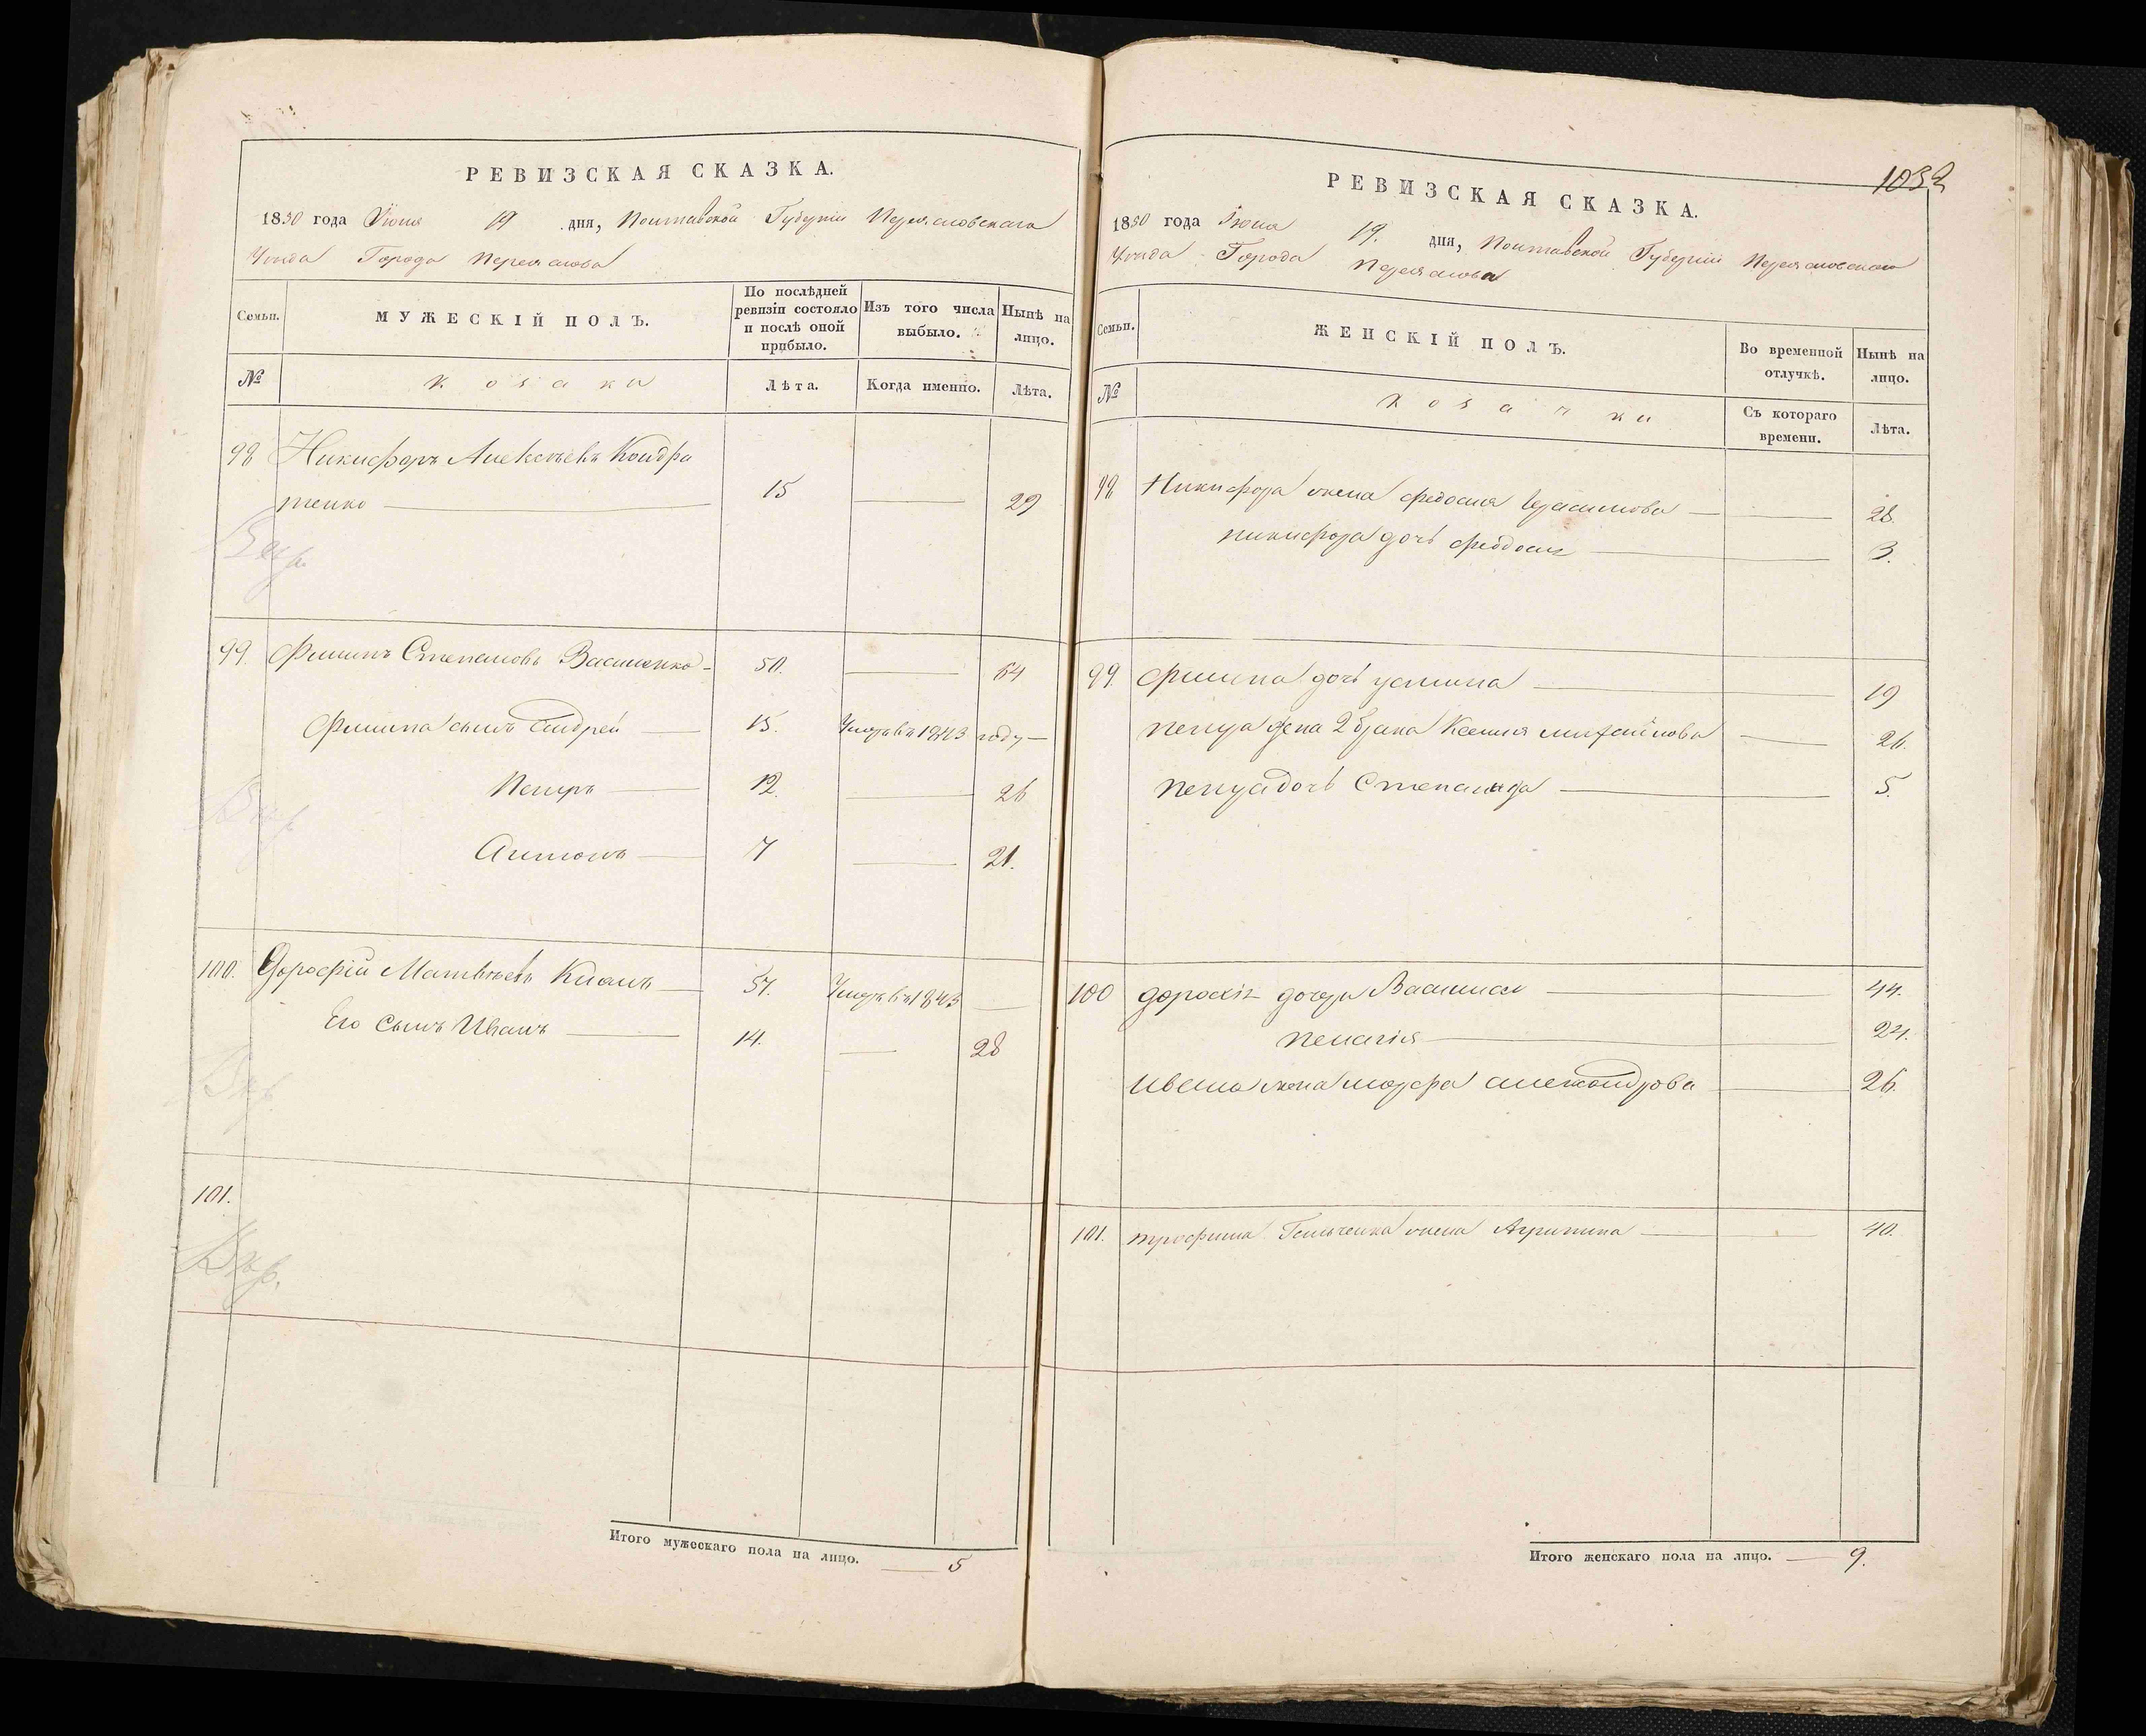 РЕВИЗСКАЯ СКАЗКА.
1850 года Июня 19 дня, Полтавской Губернiи Переяславскаго
Уезда Города Переяслова
Семьи.
МУЖЕСКIЙ ПОЛЪ.
По послѣдней ревизiи состояло и послѣ оной прибыло.
Изъ того числа выбыло.
Нынѣ на лицо.
№
козаки
Лѣта.
Когда именно.
Лѣта.
98 Никифоръ Алексѣевъ Кондра
тенко 15 29
99. Филипъ Степановъ Василенко 50. 64
Филипа сынъ Андрей 15. Умеръ въ 1843 году
Петръ 12. 26
Антонъ 7 21.
100. Дорофiй Матвѣевъ Кианъ 57. Умеръ въ 1843
Его сынъ Иванъ 14. 28
101.
Итого мужескаго пола на лицо. 5
1032
РЕВИЗСКАЯ СКАЗКА.
1850 года Июня 19. дня, Полтавской Губернiи Переясловскаго
Уезда Города Переяслова
Семьи.
ЖЕНСКIЙ ПОЛЪ.
Во временной отлучкѣ.
Нынѣ на лицо.
№
козачки
Съ котораго времени.
Лѣта.
98 Никифора жена Федосия Герасимова 28.
Никифора дочь Феодосия 3.
99. Филипа дочь Улиина 19
Петра жена 2 брака Ксения Михайлова 26.
Петра дочь Степанида 5.
100 Дорофiя дочери Василиса 44.
Пелагiя 24.
Ивана жена Марфа Александрова 26.
101. Трофима жена Агрипина 40.
Итого женскаго пола на лицо. 9.